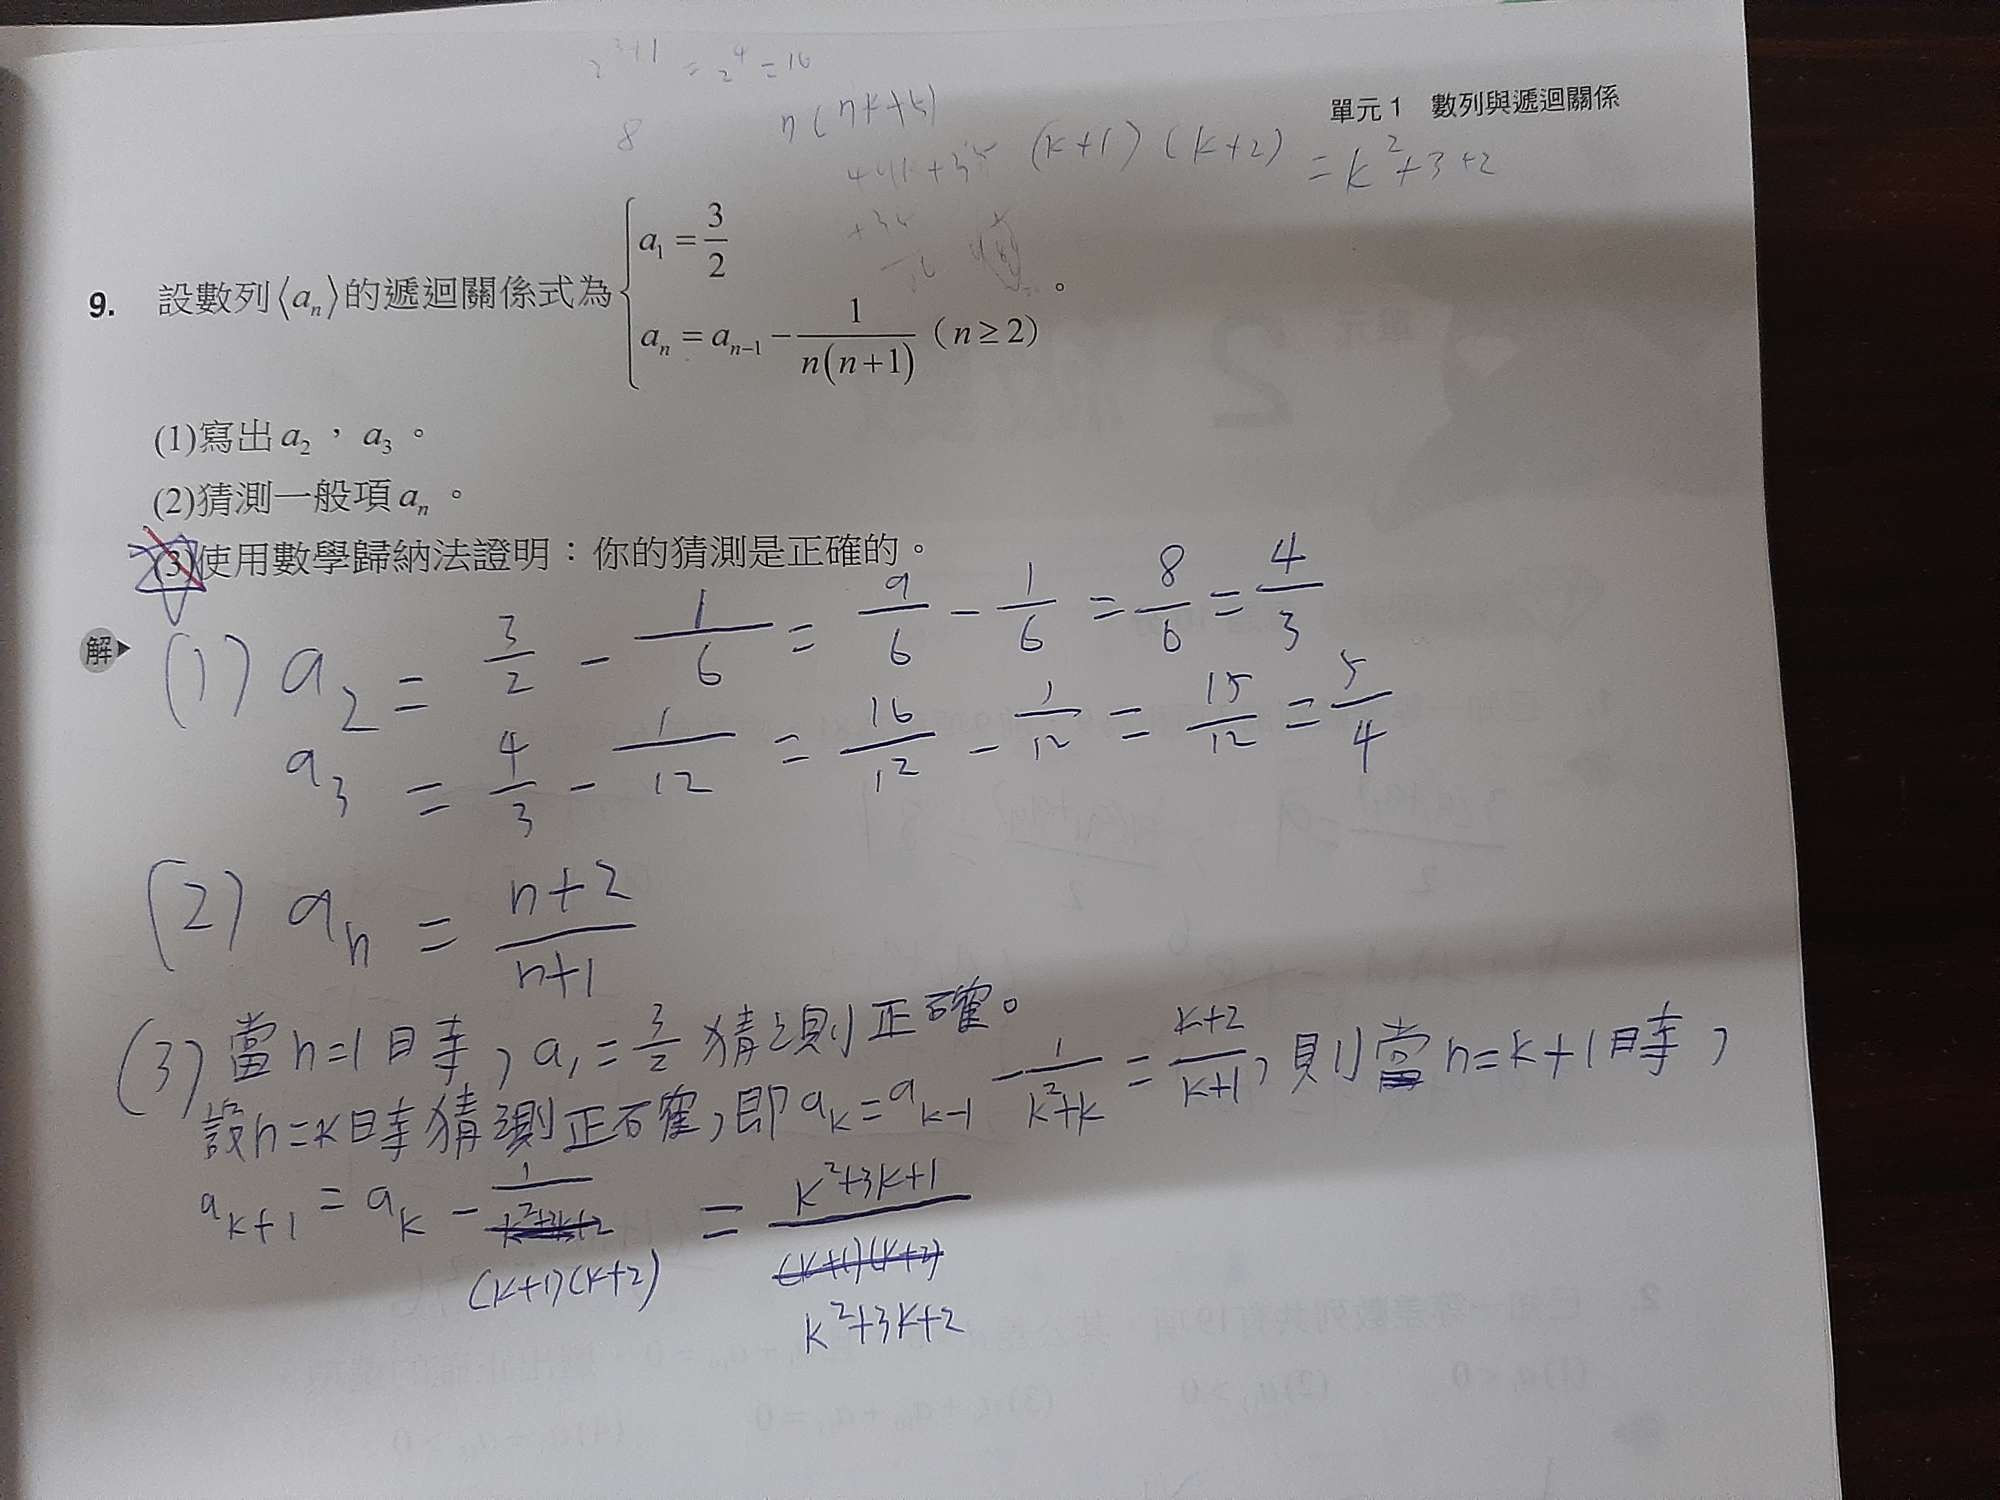 2^{3+1} = 2^4 = 16
8
單元 1 數列與遞迴關係
(k+1)(k+2) = k^2+3+2
9. 設數列⟨a_n⟩的遞迴關係式為 { a_1 = 3/2
a_n = a_{n-1} - 1/(n(n+1)) (n≥2) 。
(1)寫出 a_2 , a_3 。
(2)猜測一般項 a_n 。
(3)使用數學歸納法證明:你的猜測是正確的。
解
(1) a_2 = 3/2 - 1/6 = 9/6 - 1/6 = 8/6 = 4/3
a_3 = 4/3 - 1/12 = 16/12 - 1/12 = 15/12 = 5/4
(2) a_n = (n+2)/(n+1)
(3) 當n=1時, a_1 = 3/2 猜測正確。
設n=k時猜測正確,即a_k = a_{k-1} - 1/(k^2+k) = (k+2)/(k+1), 則當n=k+1時,
a_{k+1} = a_k - 1/((k+1)(k+2)) = (k^2+3k+1)/(k^2+3k+2)